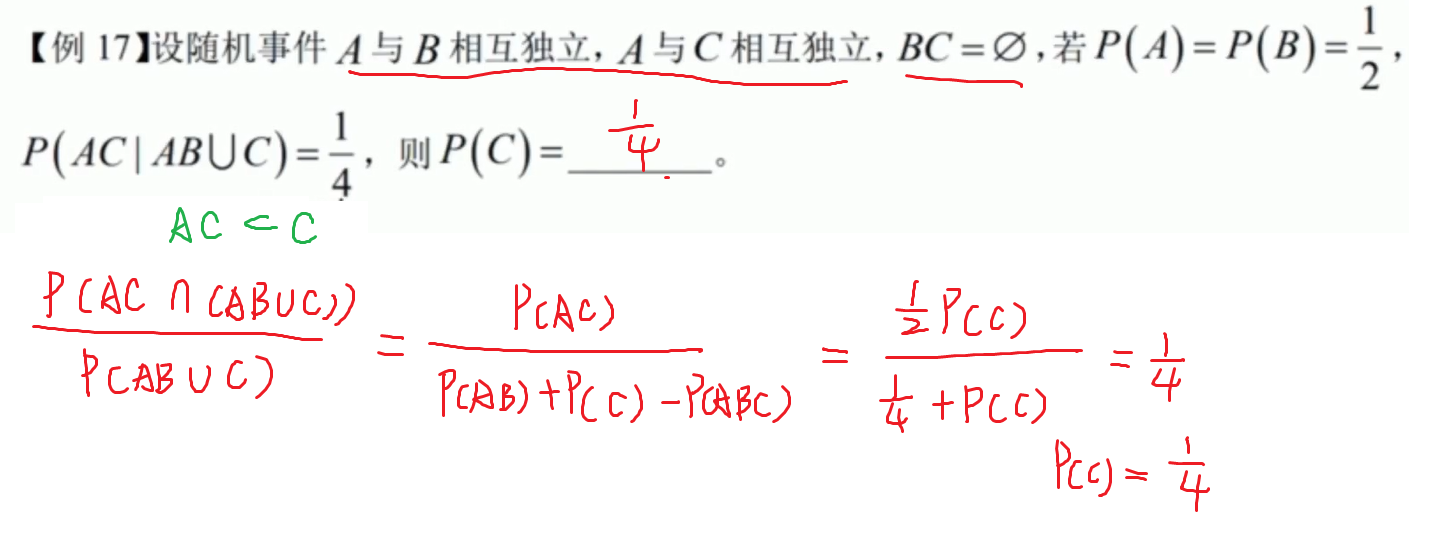 【例 17】设随机事件 A 与 B 相互独立，A 与 C 相互独立，BC=∅，若 P(A)=P(B)=1/2，
P(AC|AB∪C)=1/4，则 P(C)=1/4。
AC ⊂ C
P(AC ∩ (AB∪C))/P(AB∪C) = P(AC)/(P(AB)+P(C)-P(ABC)) = (1/2 P(C))/(1/4+P(C)) = 1/4
P(C) = 1/4